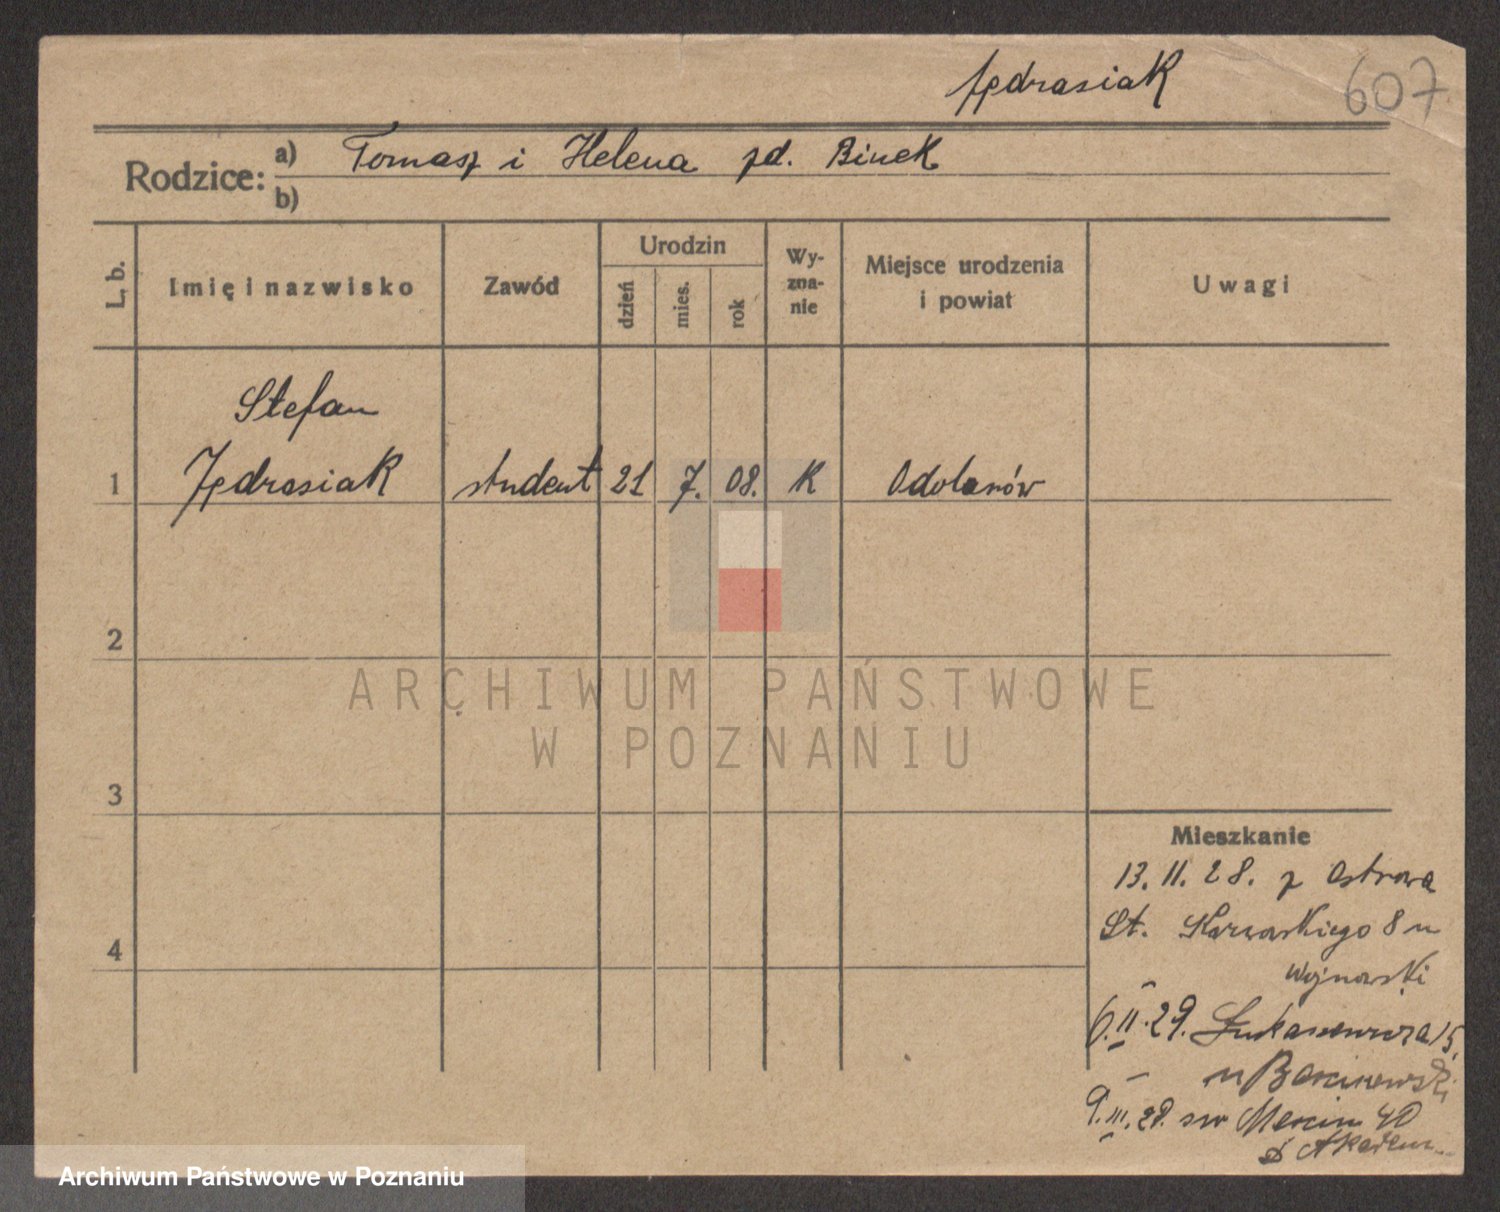 Jędrasiak 607
Rodzice: a) Tomasz i Helena zd. Binek
b)
L. b. Imię i nazwisko Zawód Urodzin dzień mies. rok Wyznanie Miejsce urodzenia i powiat Uwagi
Stefan
1 Jędrasiak student 21 7. 08. K Odolanów
2
ARCHIWUM PAŃSTWOWE
W POZNANIU
3
Mieszkanie
13. 11. 28. z Ostrowa
St. 8 u
4
Wojnowski
6. II. 29. Łukaszewicza 15,
u
9. III. 29. św Marcin 40
Archiwum Państwowe w Poznaniu